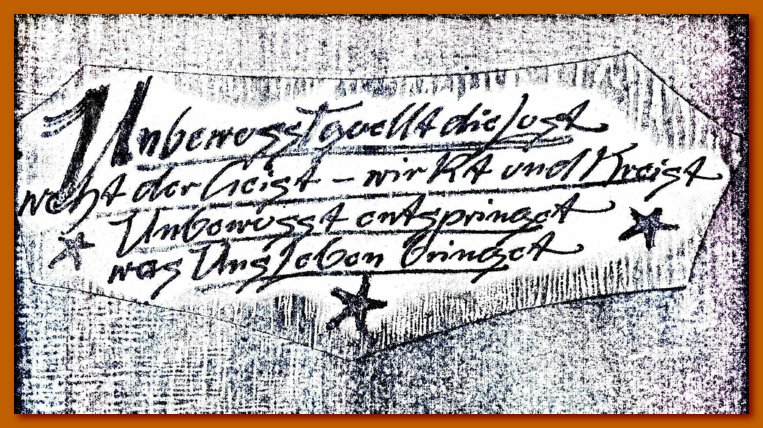 Unbewusst quellt die Lust
weht der Geist – wirkt und Kreist
Unbewusst entspringet
was Uns Leben bringet